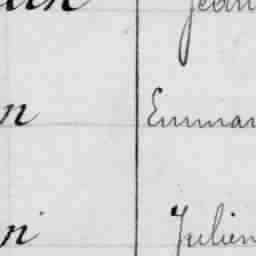 Jean
n Emman
n Julien